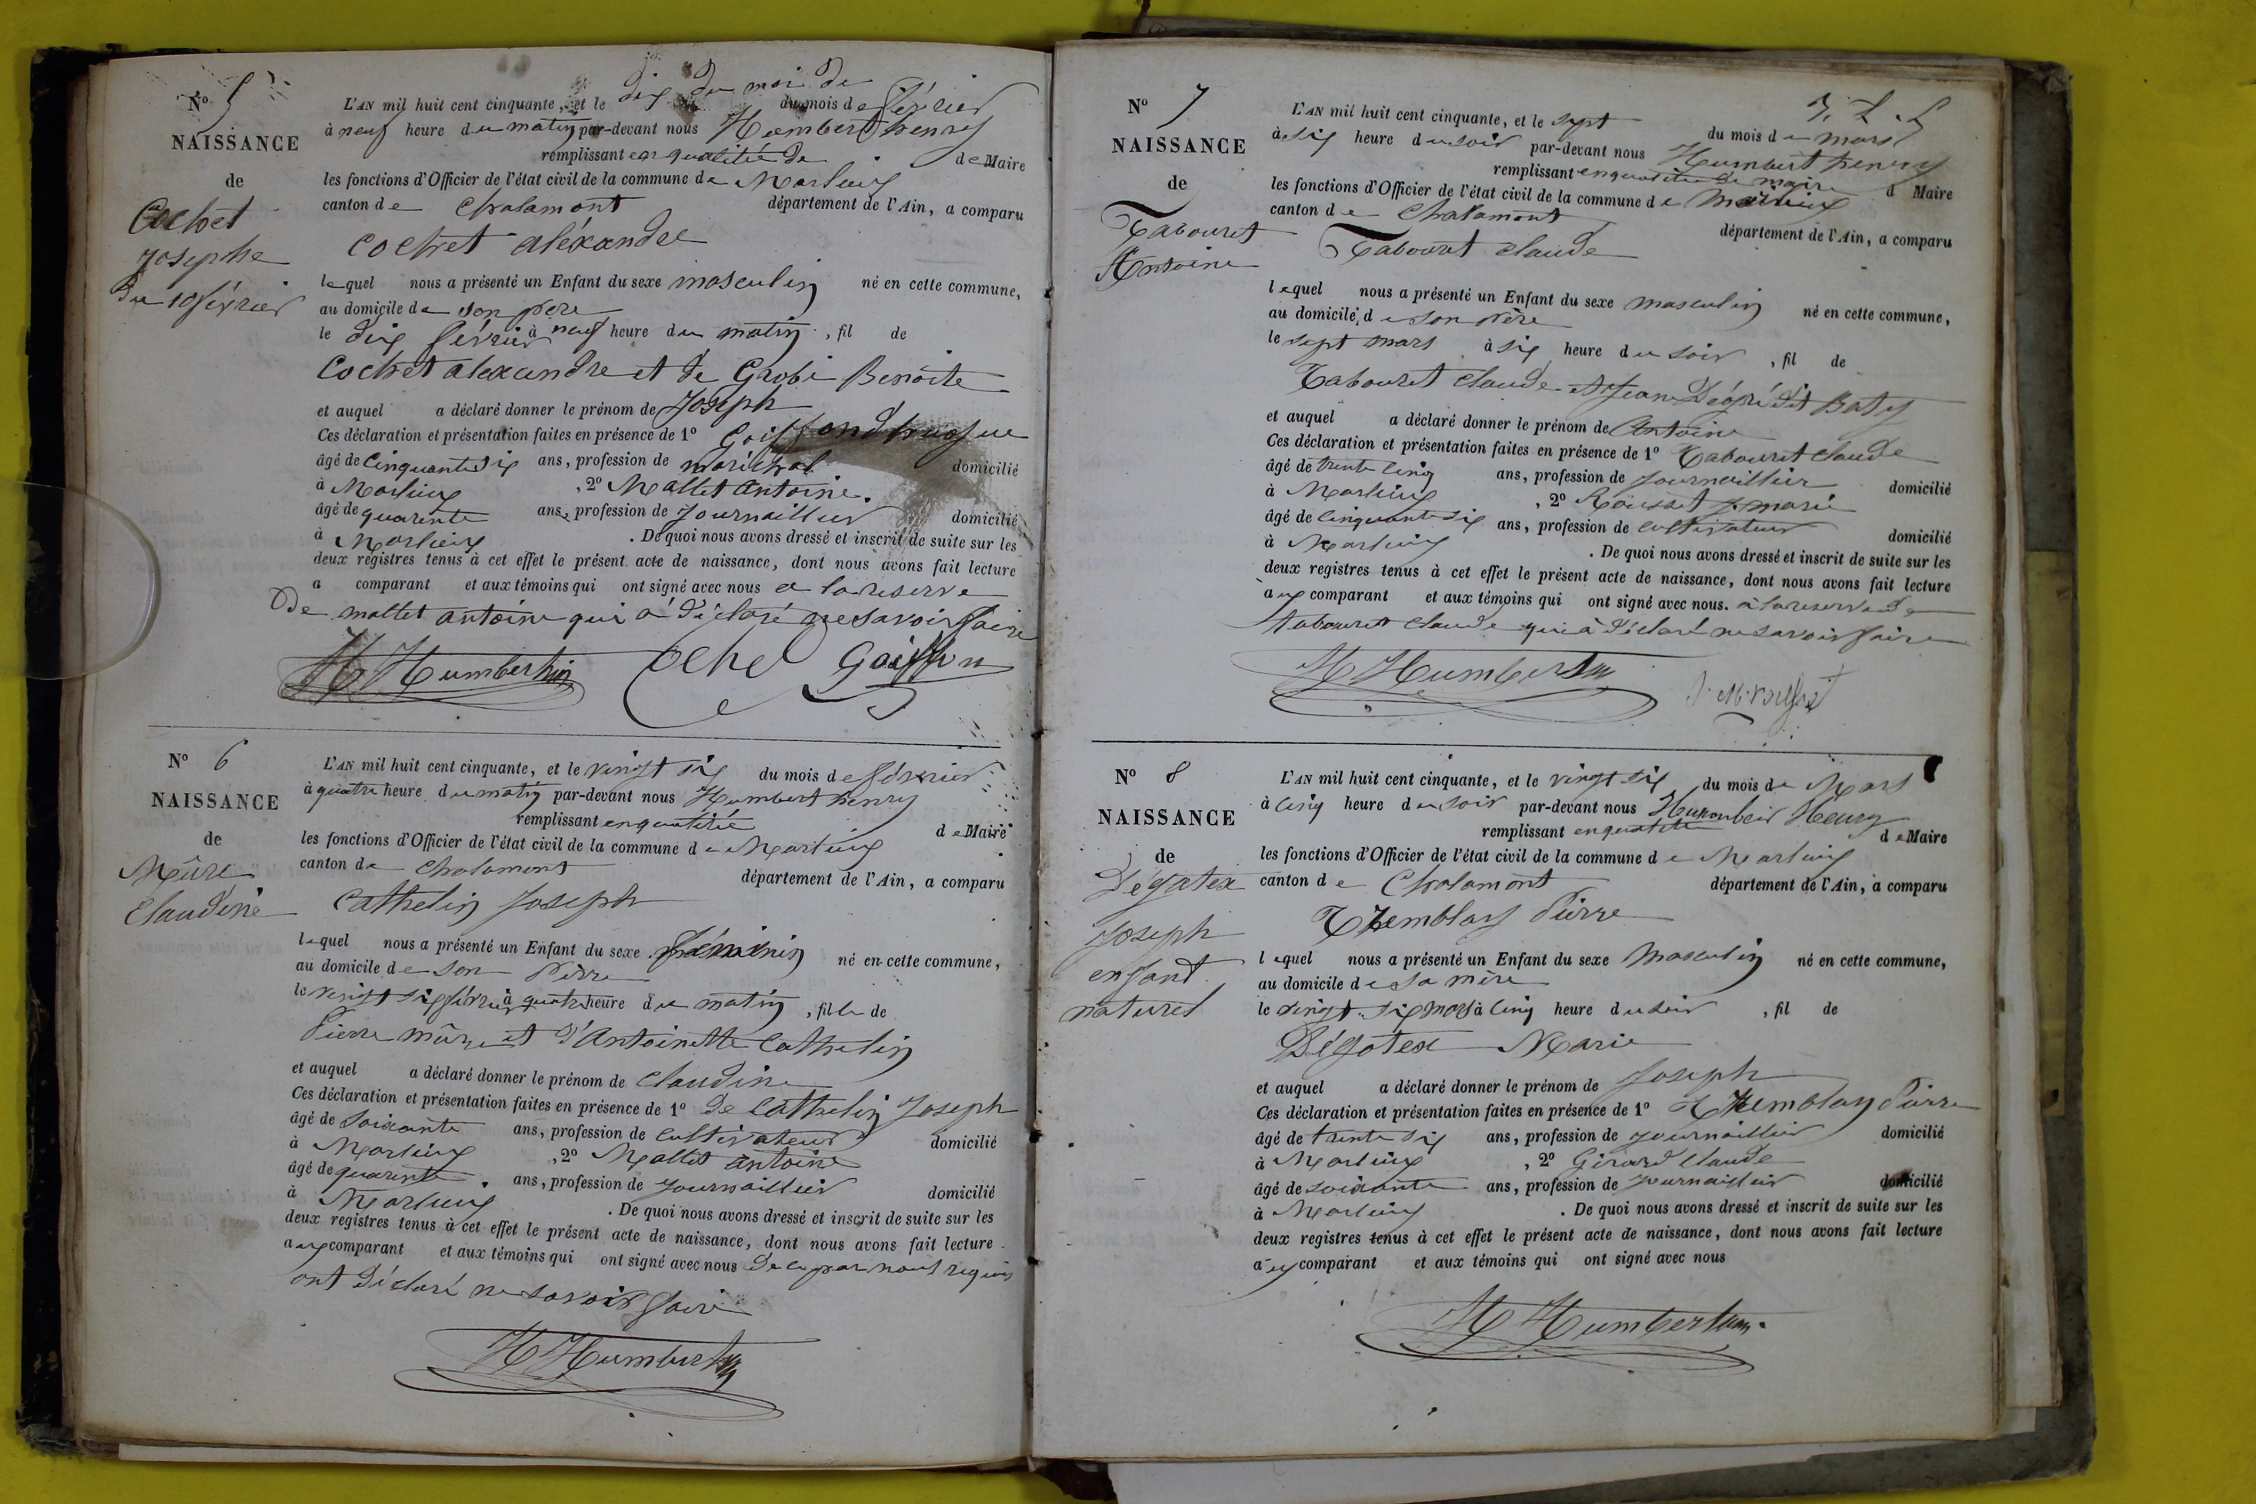 N° 5
NAISSANCE
de
Cochet
Josephe
du 10 février
dix du mois de
L'AN mil huit cent cinquante, et le dix du mois de février
à neuf heure du matin par-devant nous Humbert henry
remplissant en qualitée de de Maire
les fonctions d'Officier de l'état civil de la commune de Marlieux
canton de Chalamont département de l'Ain, a comparu
Cochet aléxandre
lequel nous a présenté un Enfant du sexe masculin né en cette commune,
au domicile de son père
le dix février à neuf heure du matin, fil de
Cochet alexandre et de Grobi Benoite
et auquel a déclaré donner le prénom de Joseph
Ces déclaration et présentation faites en présence de 1°
âgé de Cinquante six ans, profession de maréchal domicilié
à Marlieux, 2° Mallet Antoine.
âgé de quarente ans, profession de Journaillier domicilié
à Marlieux. De quoi nous avons dressé et inscrit de suite sur les
deux registres tenus à cet effet le présent acte de naissance, dont nous avons fait lecture
a comparant et aux témoins qui ont signé avec nous a la reserve
de mallet antoine qui a déclaré ne savoir faire
H Humbert Cochet Goiffon
N° 6
NAISSANCE
de
Mûre
Claudine
L'AN mil huit cent cinquante, et le vingt six du mois de février
à quatre heure du matin par-devant nous Humbert henry
remplissant en qualitée de Maire
les fonctions d'Officier de l'état civil de la commune de Marlieux
canton de Chalamont département de l'Ain, a comparu
Cathelin Joseph
lequel nous a présenté un Enfant du sexe féminin né en cette commune,
au domicile de son Père
le vingt six février à quatre heure du matin, fille de
Pierre mûre et d'Antoinette Cathelin
et auquel a déclaré donner le prénom de Claudine
Ces déclaration et présentation faites en présence de 1° de Cathelin Joseph
âgé de Soixante ans, profession de cultivateur domicilié
à Marlieux, 2° Mallet antoine
âgé de quarente ans, profession de Journaillier domicilié
à Marlieux. De quoi nous avons dressé et inscrit de suite sur les
deux registres tenus à cet effet le présent acte de naissance, dont nous avons fait lecture
aux comparant et aux témoins qui ont signé avec nous de ce par nous requis
ont déclaré ne savoir faire
H Humbert
N° 7
NAISSANCE
de
Tabouret
Antoine
L'AN mil huit cent cinquante, et le sept du mois de mars
à six heure du soir par-devant nous Humbert henry
remplissant en qualitée de maire d Maire
les fonctions d'Officier de l'état civil de la commune de Marlieux
canton de Chalamont département de l'Ain, a comparu
Tabouret Claude
lequel nous a présenté un Enfant du sexe masculin né en cette commune,
au domicile de son Père
le sept mars à six heure du soir, fil de
Tabouret Claude et Jeane Dégré dit Baty
et auquel a déclaré donner le prénom de Antoine
Ces déclaration et présentation faites en présence de 1° Tabouret Claude
âgé de trente cinq ans, profession de Journaillier domicilié
à Marlieux, 2° Rousset J. marie
âgé de Cinquante six ans, profession de cultivateur domicilié
à Marlieux. De quoi nous avons dressé et inscrit de suite sur les
deux registres tenus à cet effet le présent acte de naissance, dont nous avons fait lecture
aux comparant et aux témoins qui ont signé avec nous. a la reserve de
tabouret Claude qui a déclaré ne savoir faire
H Humbert
N° 8
NAISSANCE
de
Dégatex
Joseph
enfant
naturel
L'AN mil huit cent cinquante, et le vingt six du mois de Mars
à cinq heure du soir par-devant nous Humbert Henry
remplissant en qualitée de Maire
les fonctions d'Officier de l'état civil de la commune de Marlieux
canton de Chalamont département de l'Ain, a comparu
Themblay Pierre
lequel nous a présenté un Enfant du sexe Masculin né en cette commune,
au domicile de sa mère
le vingt six mars à cinq heure du soir, fil de
Dégatex Marie
et auquel a déclaré donner le prénom de Joseph
Ces déclaration et présentation faites en présence de 1° Themblay Pierre
âgé de trente six ans, profession de Journaillier domicilié
à Marlieux, 2° Girard Claude
âgé de soixante ans, profession de Journaillier domicilié
à Marlieux. De quoi nous avons dressé et inscrit de suite sur les
deux registres tenus à cet effet le présent acte de naissance, dont nous avons fait lecture
aux comparant et aux témoins qui ont signé avec nous
H Humbert